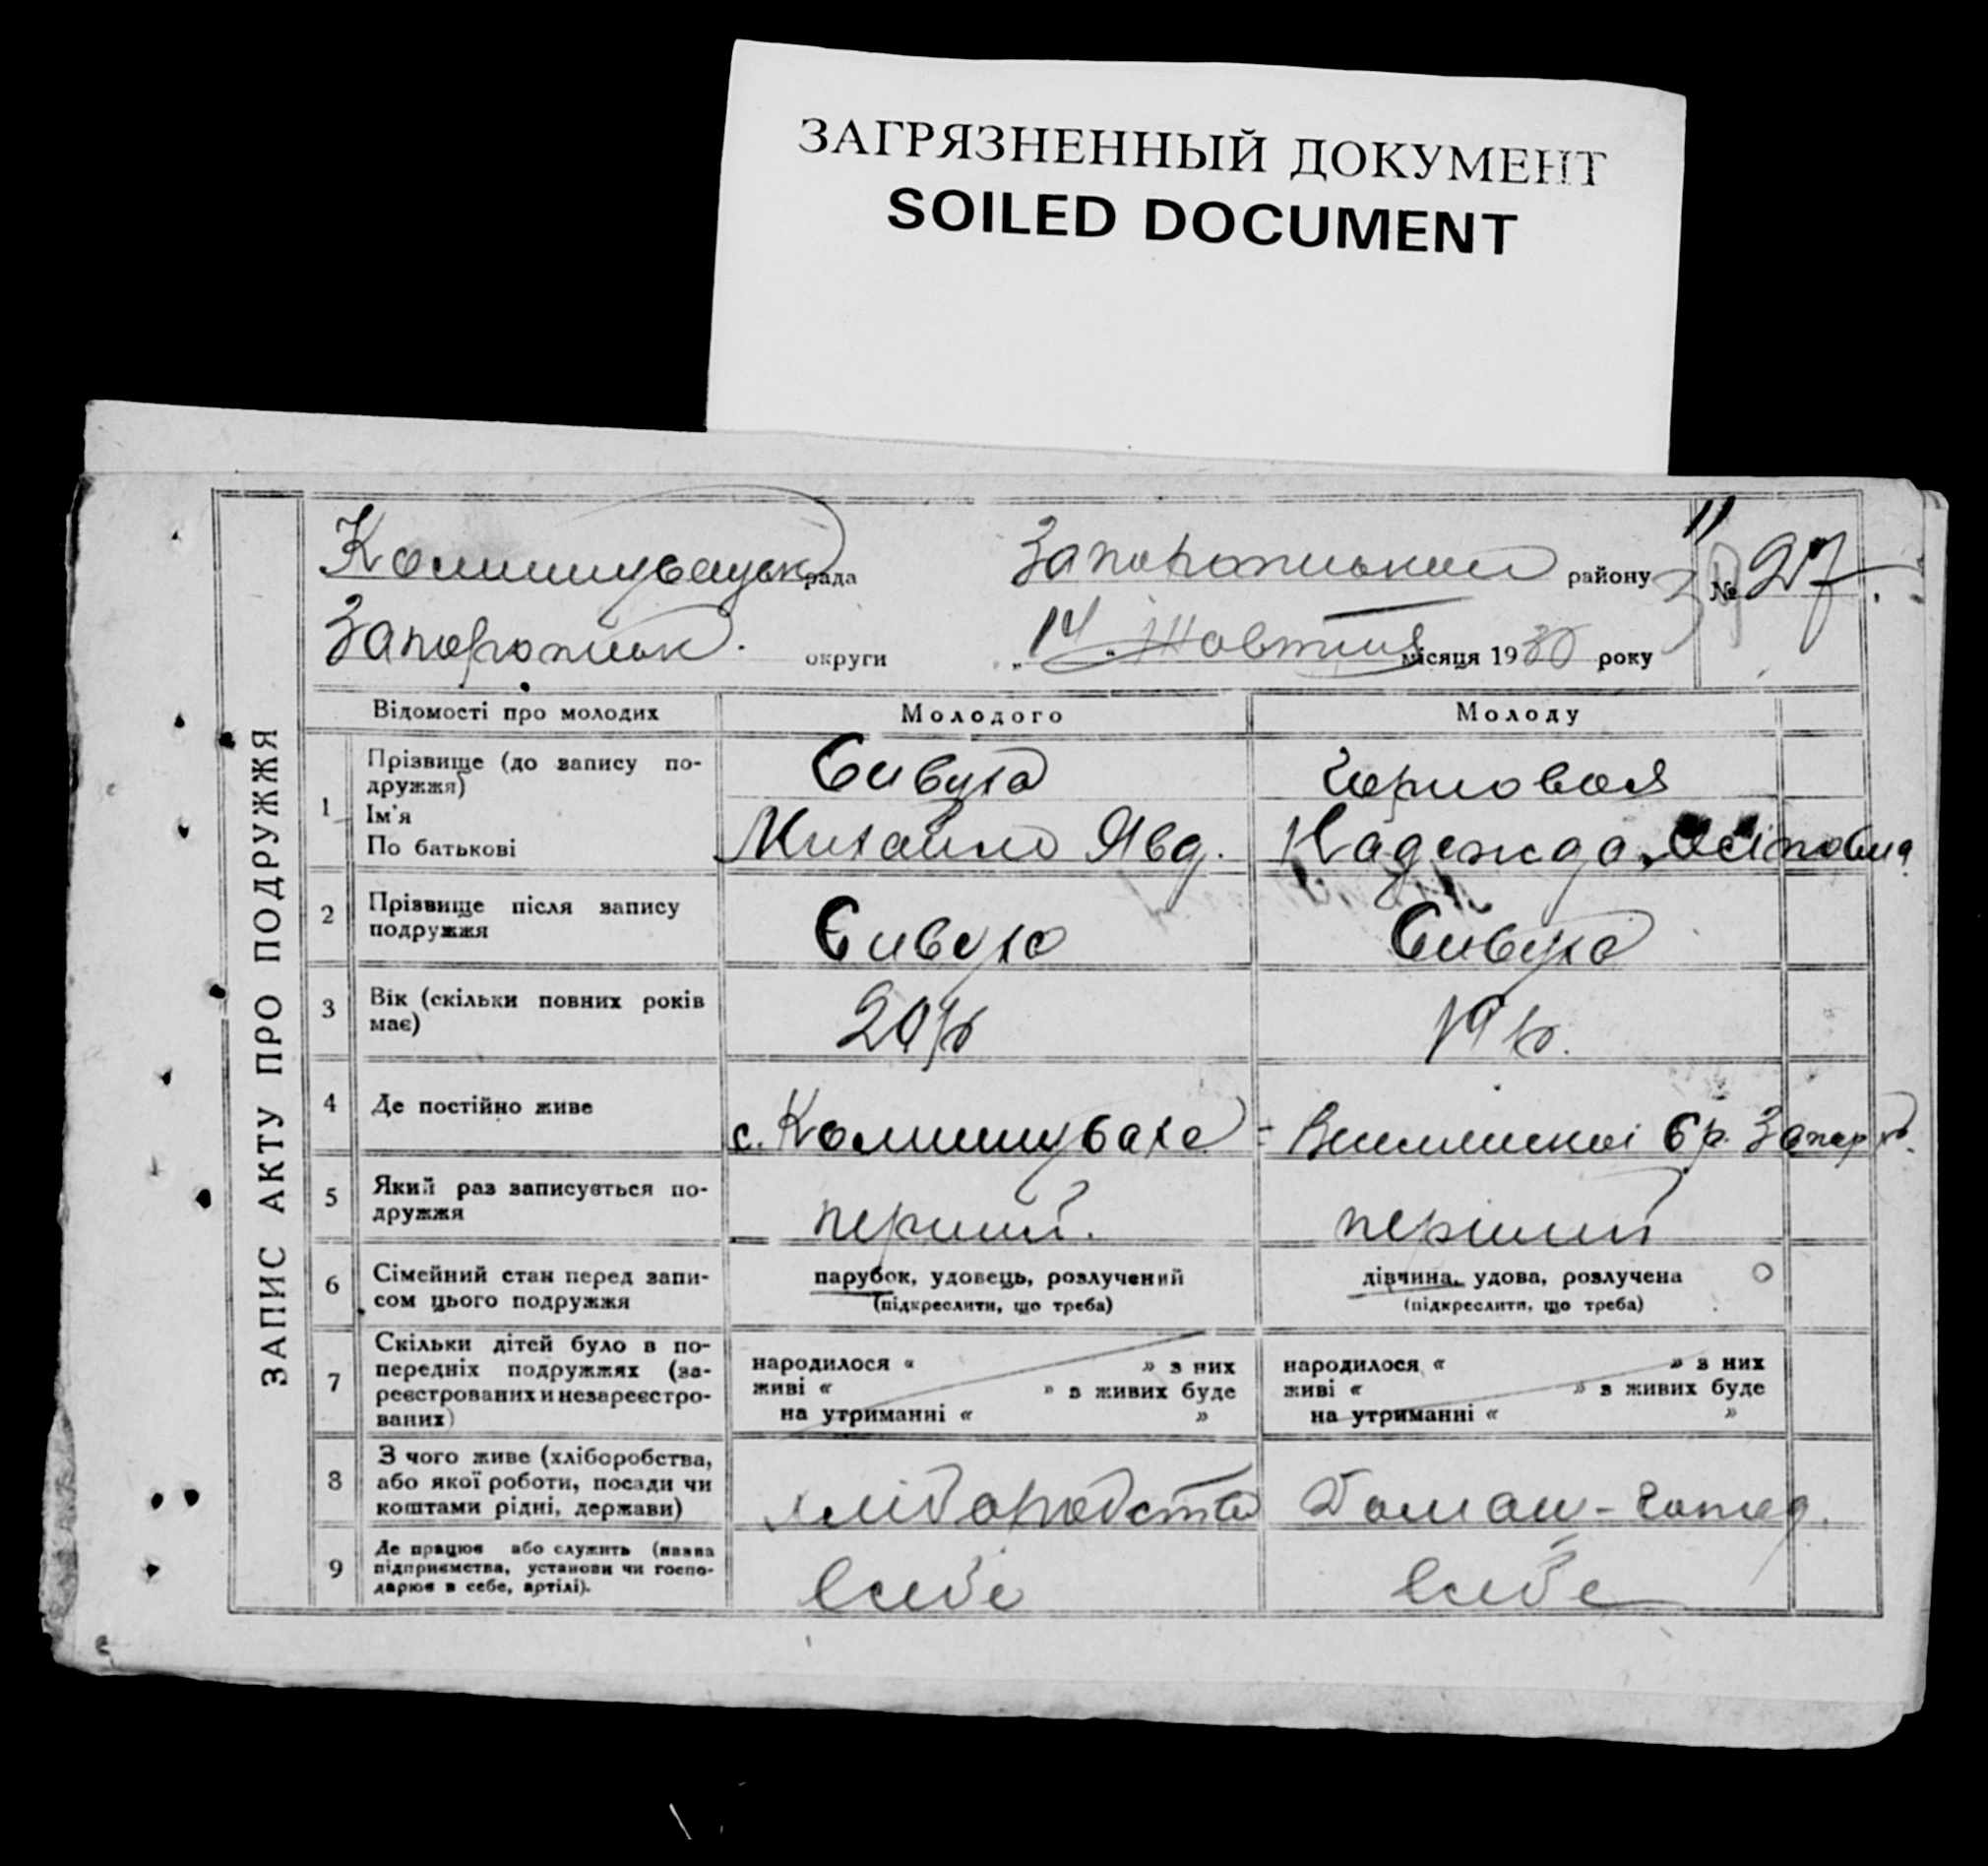 ЗАГРЯЗНЕННЫЙ ДОКУМЕНТ
SOILED DOCUMENT
ЗАПИС АКТУ ПРО ПОДРУЖЖЯ
Комишувацьк рада Запорожського району № 27
Запорожськ. округи „14„ Жовтня місяця 1930 року
Відомості про молодих Молодого Молоду
1 Прізвище (до запису по-
дружжя) Сивуха
Ім'я
По батькові Михайло Явд. Надежда Осіповна
2 Прізвище після запису
подружжя Сивуха Сивуха
3 Вік (скільки повних років
має) 20 р 19 р.
4 Де постійно живе с. Комишуваха
5 Який раз записується по-
дружжя перший. перший
6 Сімейний стан перед запи-
сом цього подружжя парубок, удовець, розлучений
(підкреслити, що треба) дівчина, удова, розлучена
(підкреслити, що треба)
7 Скільки дітей було в по-
передніх подружжях (за-
реєстрованих и незареєстро-
ваних)
народилося « » з них
живі « » з живих буде
на утриманні « »
народилося « » з них
живі « » з живих буде
на утриманні « »
8 З чого живе (хліборобства,
або якої роботи, посади чи
коштами рідні, держави) хліборобство Домаш-
9 Де працює або служить (назва
підприємства, установи чи госпо-
дарює в себе, артілі). всебе всебе